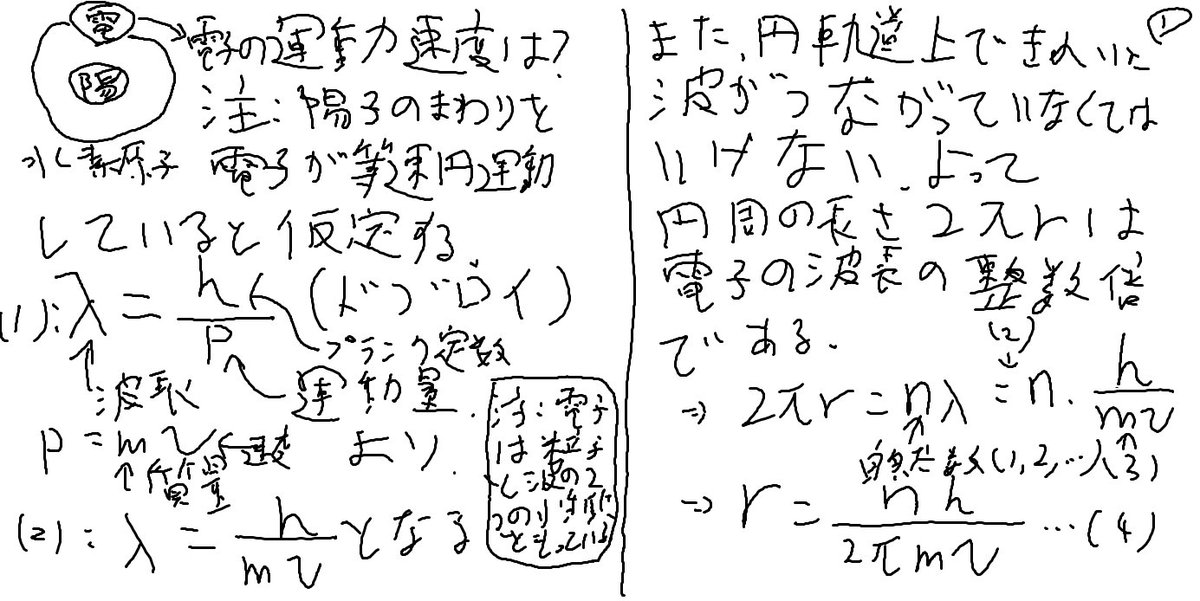 電
陽
水素原子
電子の運動速度は?
注:陽子のまわりを
電子が等速円運動
していると仮定する
(1):λ = h/P (ドブロイ)
プランク定数
波長
運動量
P = mv より
速度
質量
(2):λ = h/mv となる
注:電子
は粒子
と波の2
つの性質
をもっている
①
また、円軌道上できれいに
波がつながっていなくては
いけない、よって
円周の長さ2πrは
電子の波長の整数倍
である.
(2)
⇒ 2πr = nλ = n・h/mv
自然数(1,2,…)(3)
⇒ r = nh/2πmv …(4)